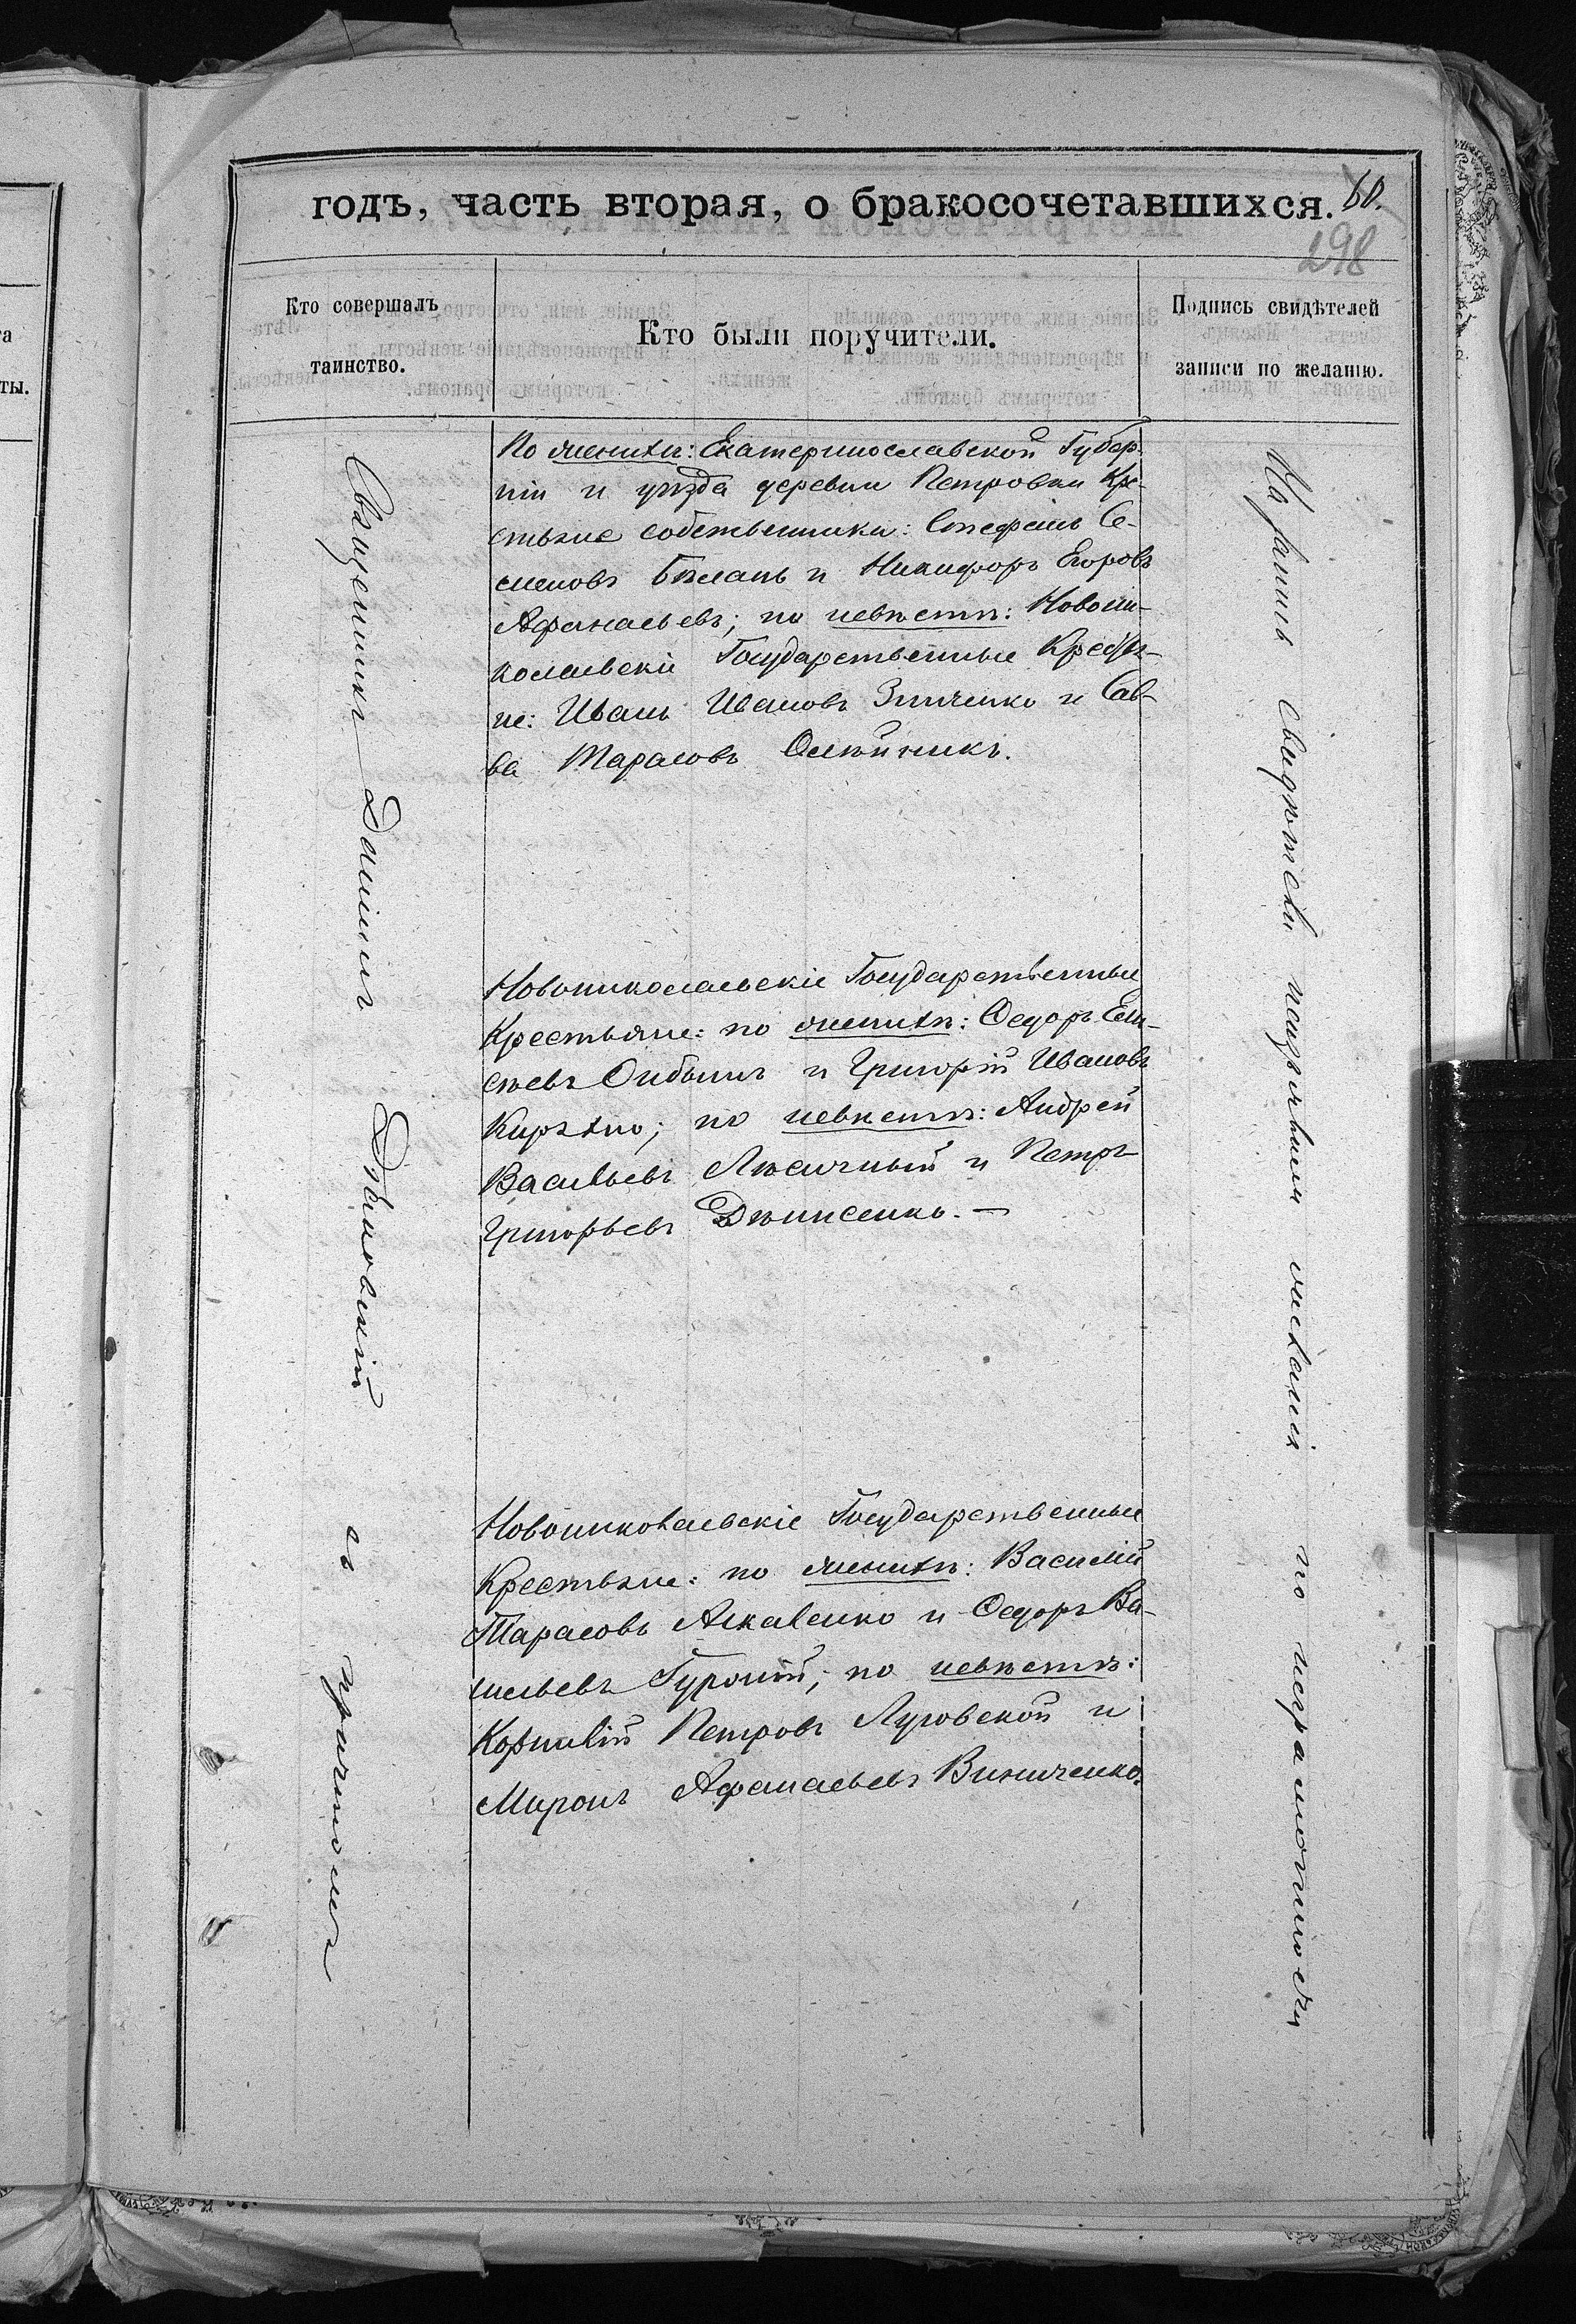 годъ, часть вторая, о бракосочетавшихся. 60.
298
Кто совершалъ
таинство.
Кто были поручители.
Подпись свидѣтелей
записи по желанію.
Священникъ Даніилъ Дьяковскій съ причтомъ
По женихѣ: Екатеринославской Губер-
ніи и уѣзда деревни Петровки Кре-
стьяне собственники: Стефанъ Се-
меновъ Бѣлань и Никифоръ Егоровъ
Афанасьевъ; по невѣстѣ: Новони-
колаевскіе Государственные Крестья-
не: Иванъ Ивановъ Зинченко и Сав-
ва Тарасовъ Олѣйникъ.
Новониколаевскіе Государственные
Крестьяне: по женихѣ: Ѳедоръ Ели-
сѣевъ и Григорій Ивановъ
Кирѣхно; по невѣстѣ: Андрей
Васильевъ и Петръ
Григорьевъ Дѣнисенко. —
Новониколаевскіе Государственные
Крестьяне: по женихѣ: Василій
Тарасовъ и Ѳедоръ Ва-
сильевъ по невѣстѣ:
Корнилій Петровъ Луговской и
Миронъ Афанасьевъ Винниченко.
свидѣтели по неграмотности